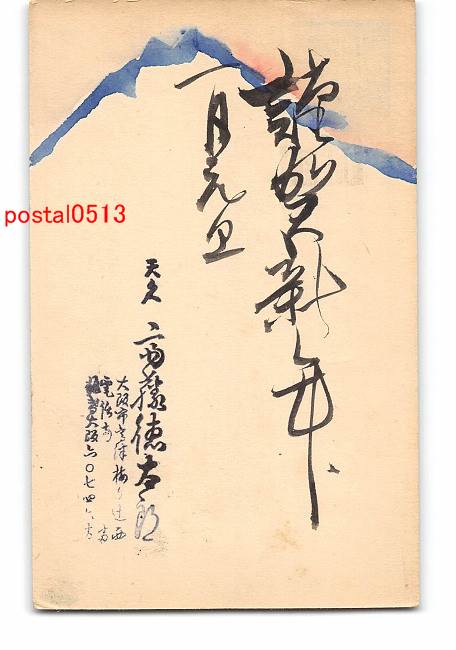 謹賀新年
一月元旦
天久
斎藤徳太郎
大阪市高津梅ヶ辻西
電話南
振替大阪六〇七四六番
postal0513